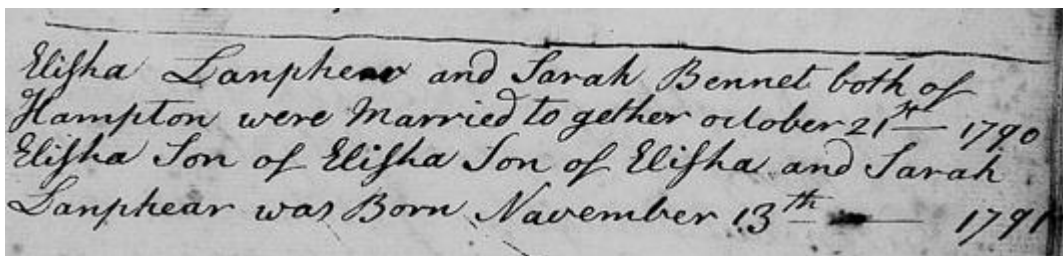 Elisha Lanphear and Sarah Bennet both of
Hampton were Married to gether october 21st 1790
Elisha Son of Elisha Son of Elisha and Sarah
Lanphear was Born November 13th 1791